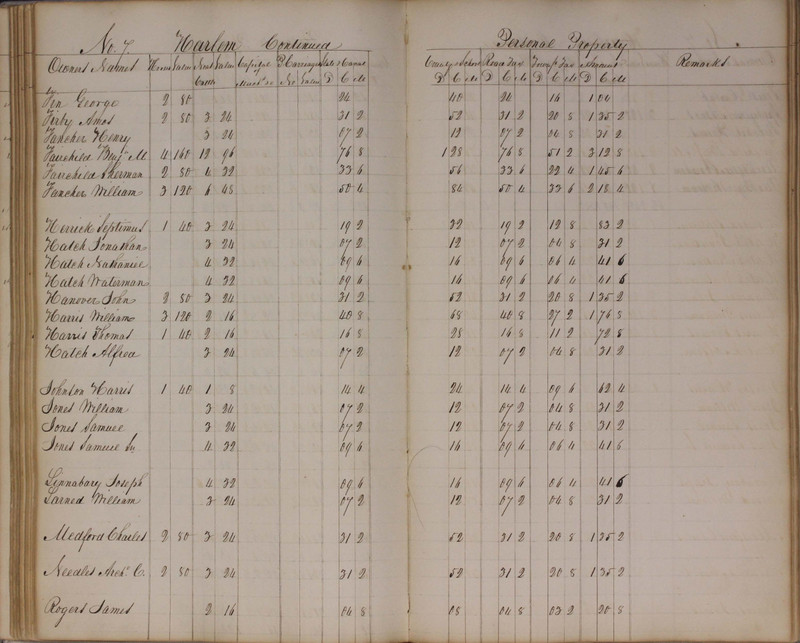 No. 7 Harlem Continued Personal Property
Owners Names Horses Value Neat Cattle Value Capital Merch &c P. Carriages No Value State & Canal D C M County & School D C M Road Tax D C M Townsp Tax D C M Amount D C M Remarks
George 2 80 24 40 24 16 1 04
Amos 2 80 3 24 31 2 52 31 2 20 8 1 35 2
Fancher Henry 3 24 07 2 12 07 2 04 8 31 2
Fairchild Benj M. 4 160 12 96 76 8 1 28 76 8 51 2 3 12 8
Fairchild Sherman 2 80 4 32 33 6 56 33 6 22 4 1 45 6
Fancher William 3 120 6 48 50 4 84 50 4 33 6 2 18 4
Herrick Septimus 1 40 3 24 19 2 32 19 2 12 8 83 2
Hatch Jonathan 3 24 07 2 12 07 2 04 8 31 2
Hatch Nathaniel 4 32 09 6 16 09 6 06 4 41 6
Hatch Waterman 4 32 09 6 16 09 6 06 4 41 6
Hanover John 2 80 3 24 31 2 52 31 2 20 8 1 35 2
Harris William 3 120 2 16 40 8 68 40 8 27 2 1 76 8
Harris Thomas 1 40 2 16 16 8 28 16 8 11 2 72 8
Hatch Alfred 3 24 07 2 12 07 2 04 8 31 2
Johnson Harris 1 40 1 8 14 4 24 14 4 09 6 62 4
Jones William 3 24 07 2 12 07 2 04 8 31 2
Jones Samuel 3 24 07 2 12 07 2 04 8 31 2
Jones Samuel 4 32 09 6 16 09 6 06 4 41 6
Joseph 4 32 09 6 16 09 6 06 4 41 6
Larned William 3 24 07 2 12 07 2 04 8 31 2
Medford Charles 2 80 3 24 31 2 52 31 2 20 8 1 35 2
Needles Archd. C. 2 80 3 24 31 2 52 31 2 20 8 1 35 2
Rogers James 2 16 04 8 08 04 8 03 2 20 8